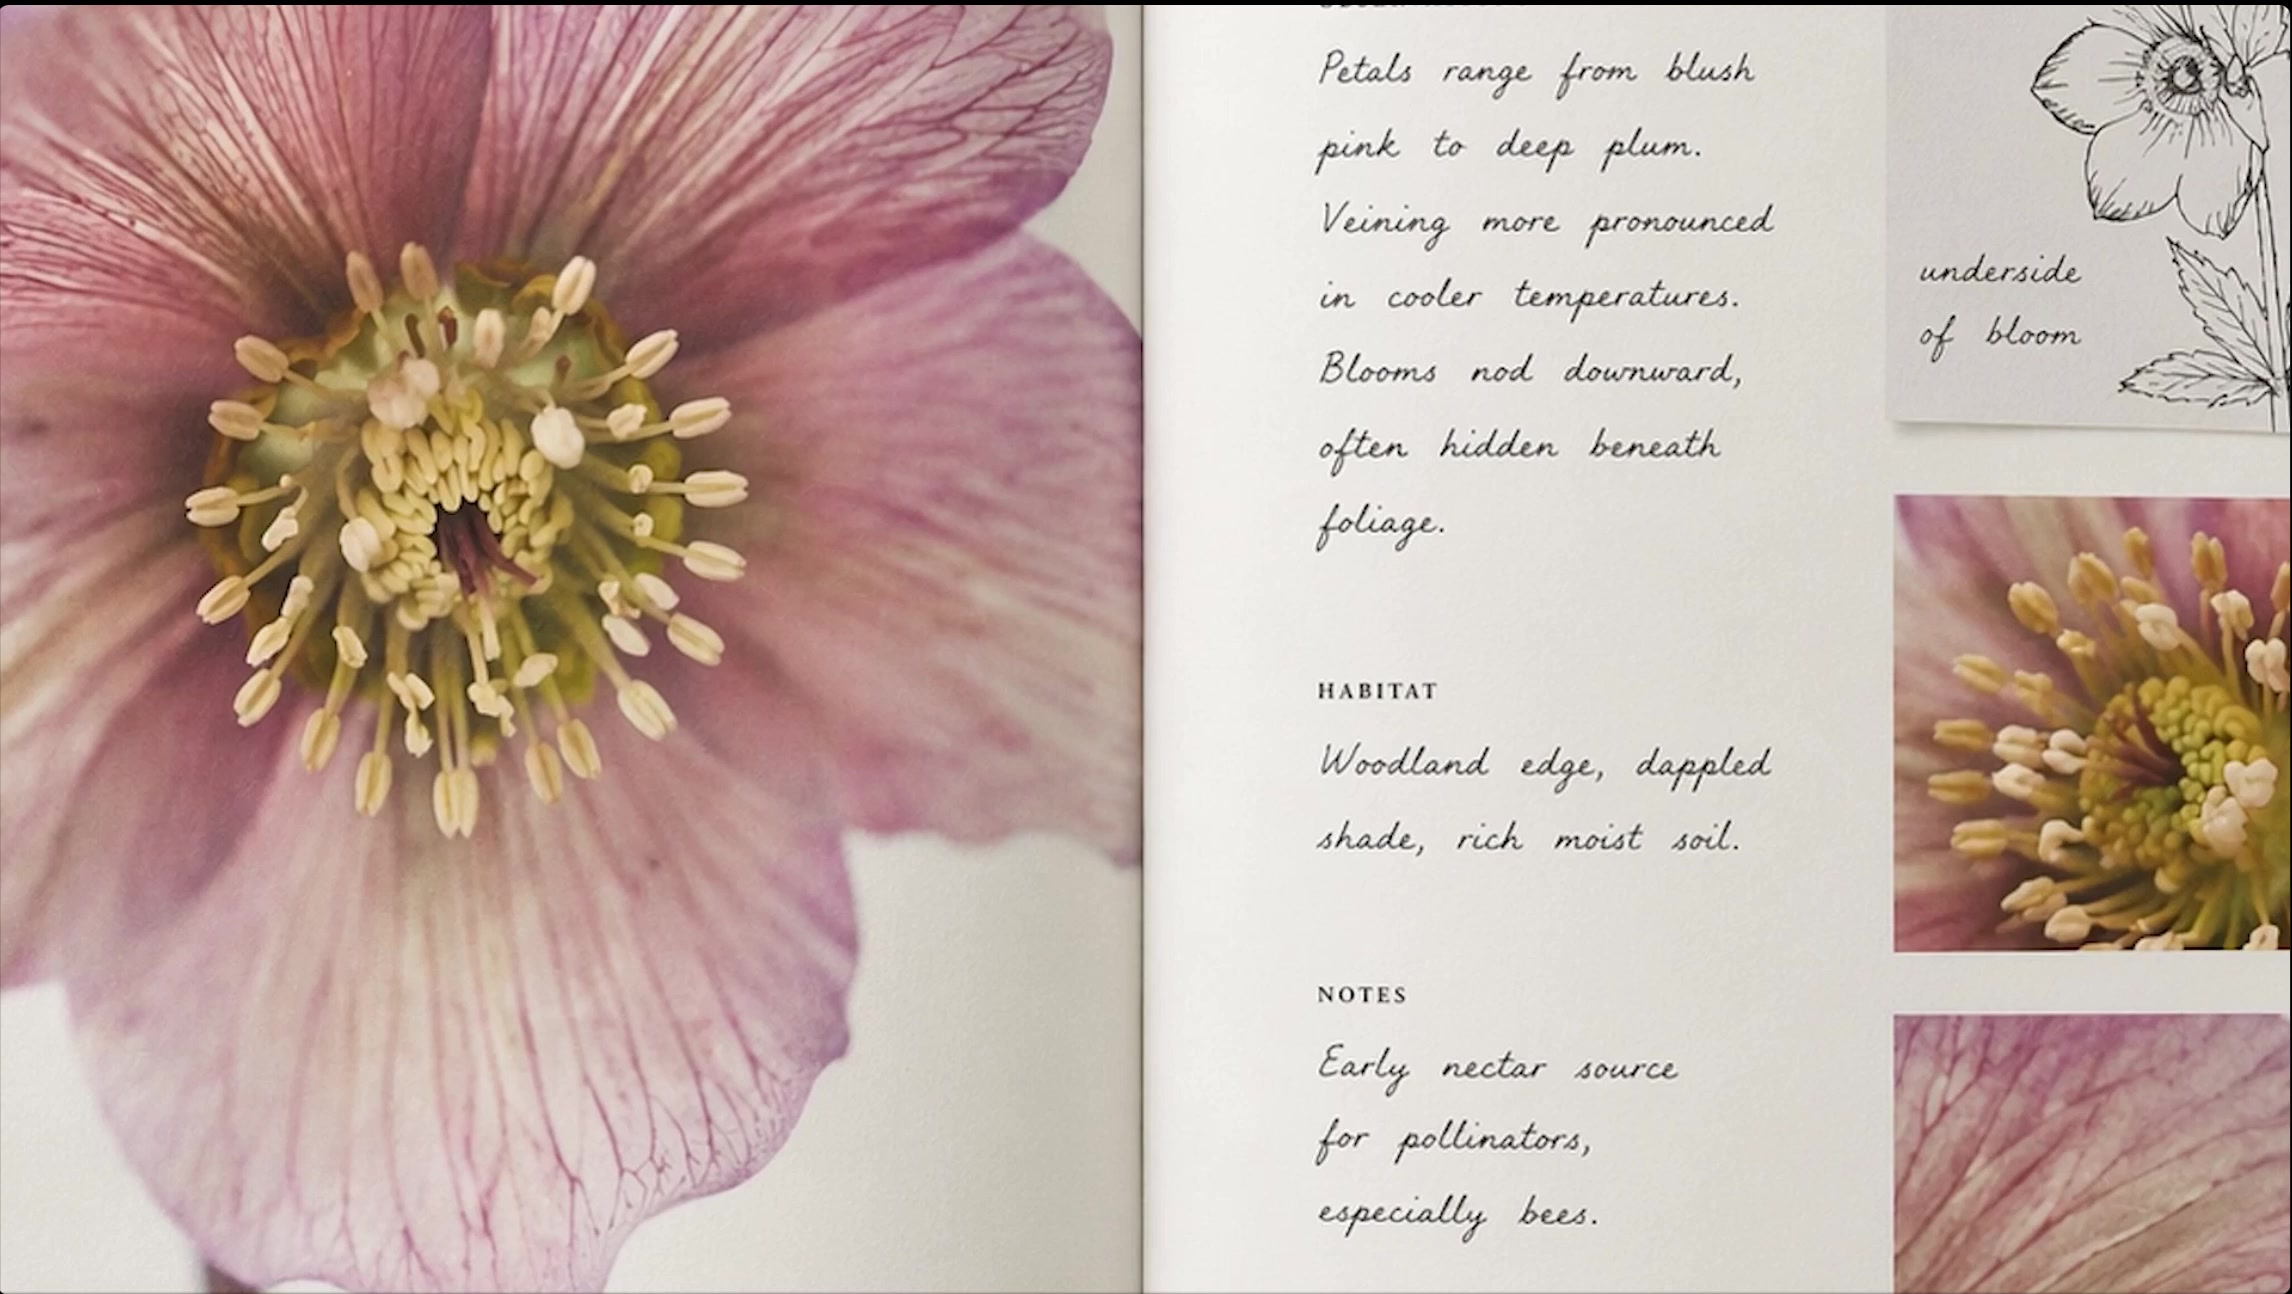 Petals range from blush
pink to deep plum.
Veining more pronounced
in cooler temperatures.
Blooms nod downward,
often hidden beneath
foliage.
HABITAT
Woodland edge, dappled
shade, rich moist soil.
NOTES
Early nectar source
for pollinators,
especially bees.
underside
of bloom